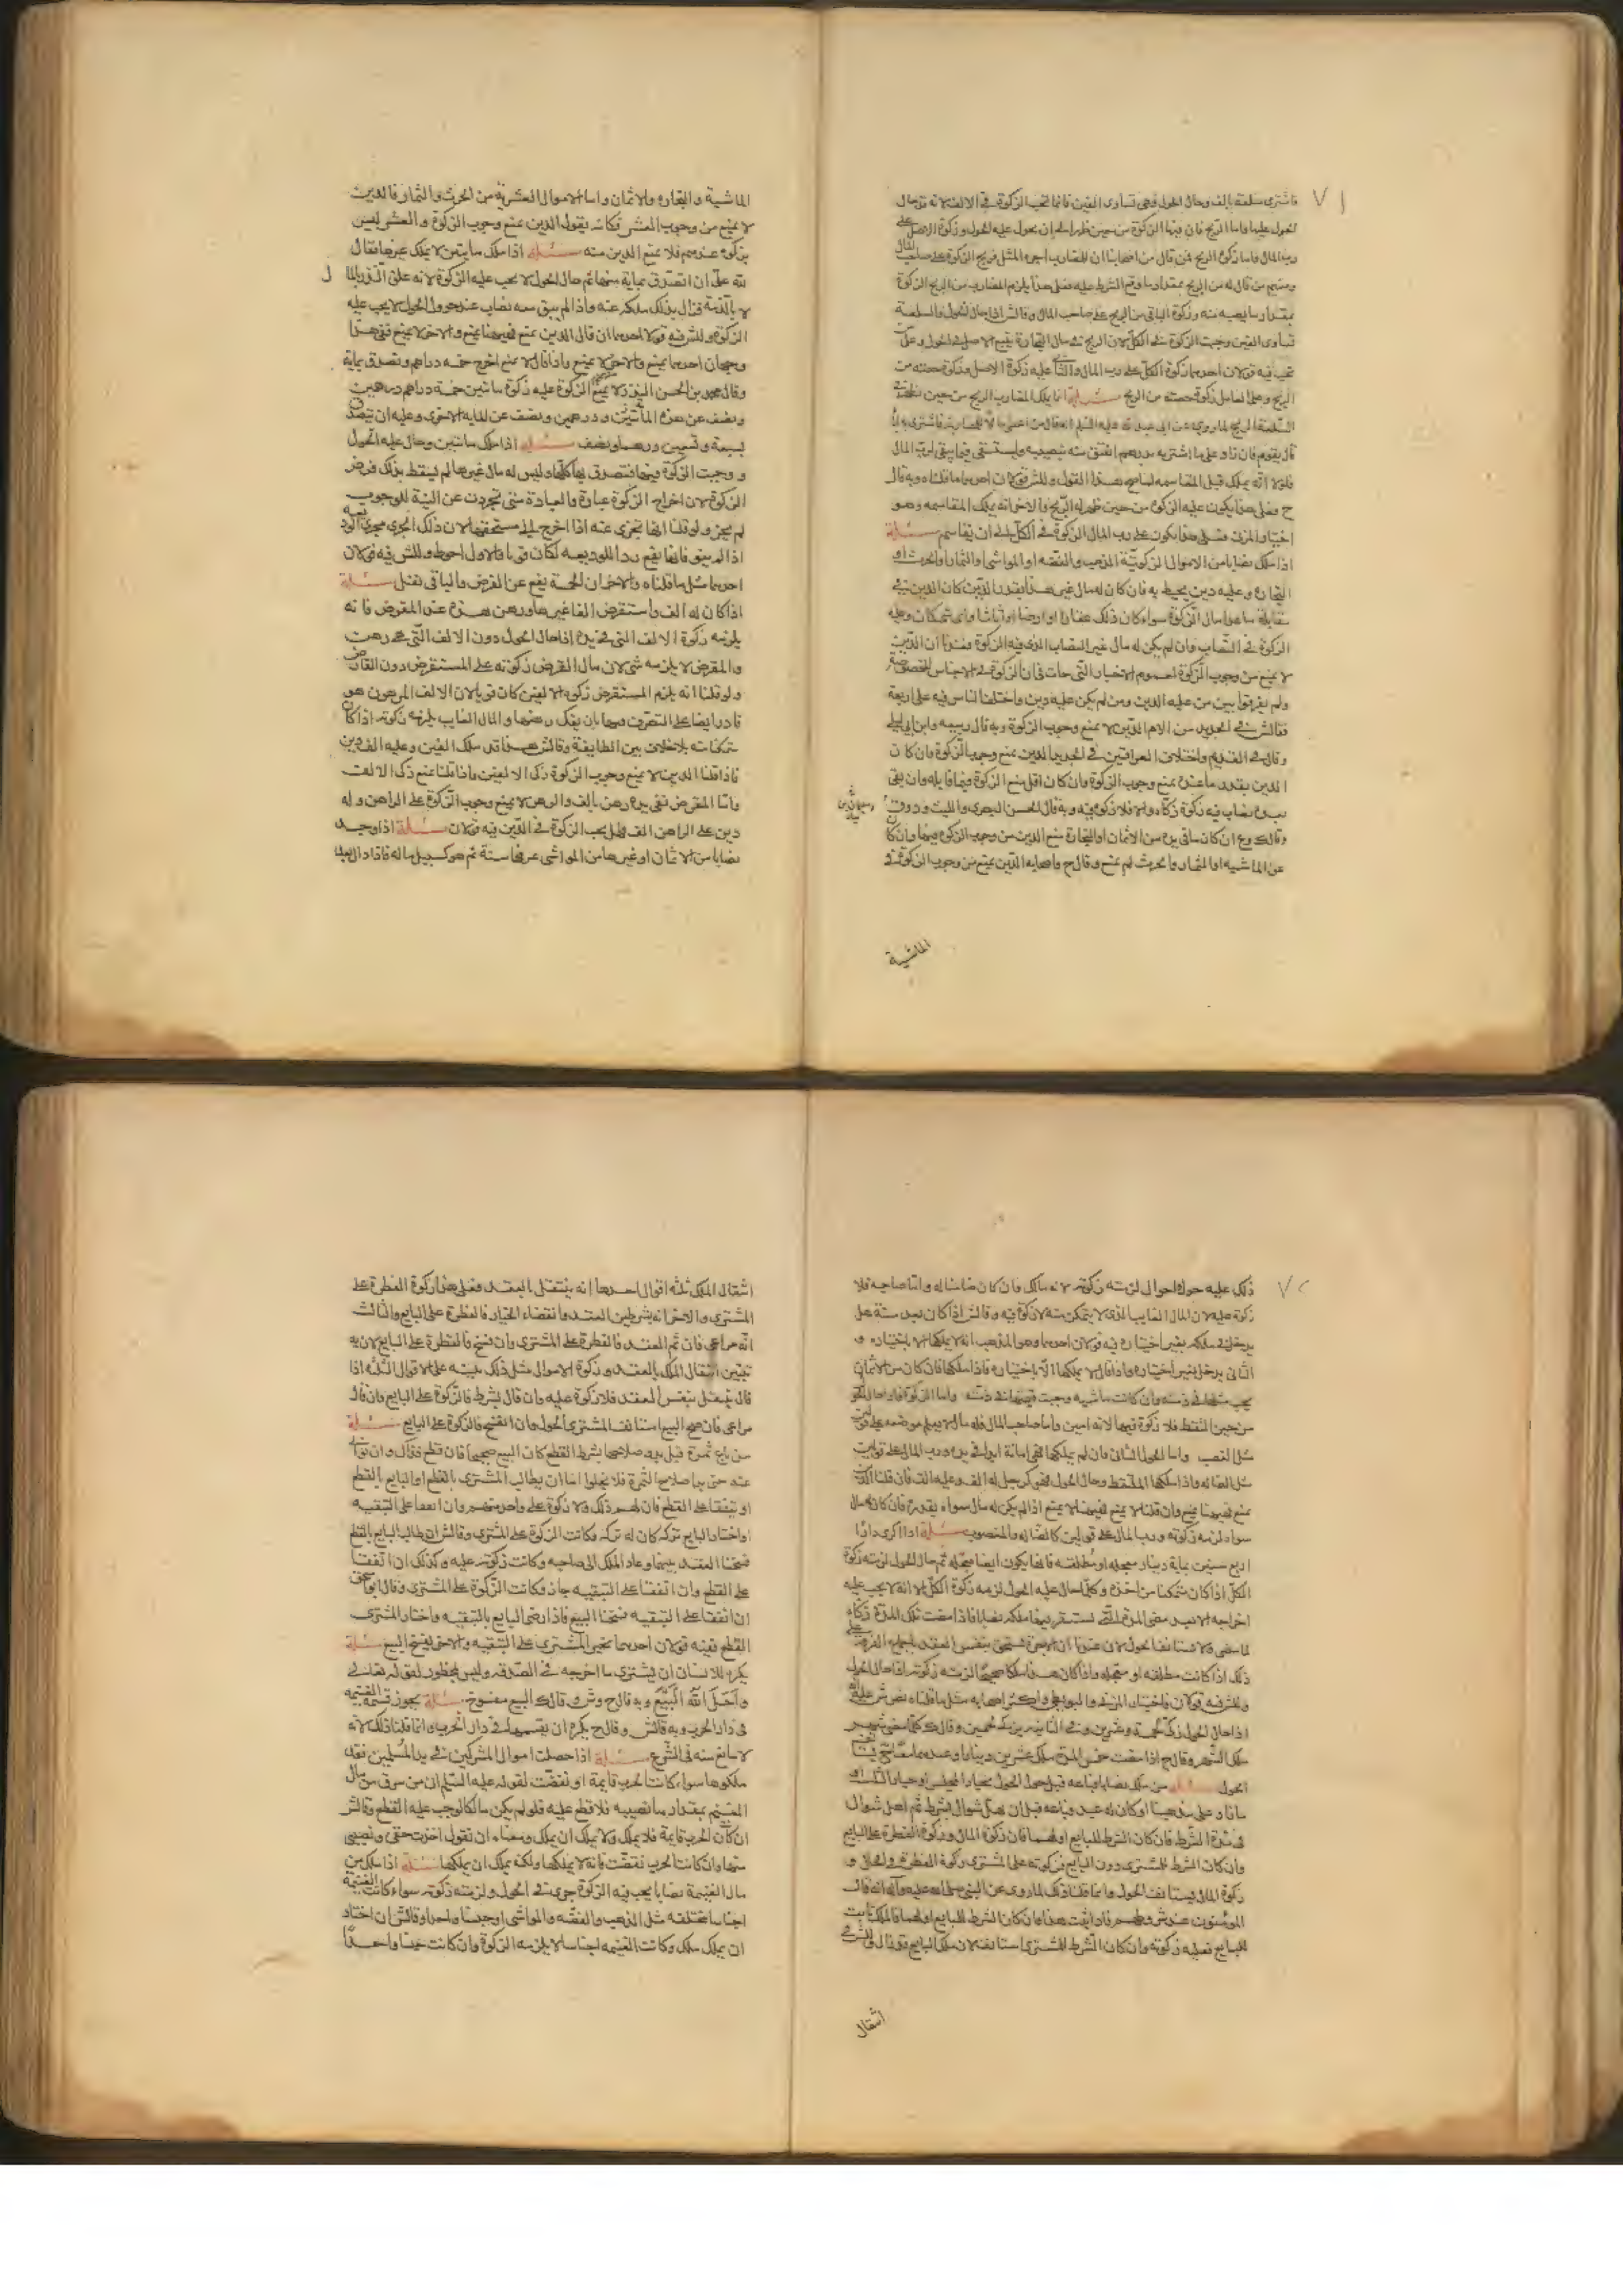 فاشترى سلعة بالف وحال الحول وهى تساوى الفين فانما تجب الزكوة فى الالف لانه قد حال
الحول عليها واما الربح فان فيها الزكوة من حين ظهر الى ان يحول عليه الحول وزكوة الاصل على
رب المال فاما زكوة الربح فمن قال من اصحابنا ان للمضارب اجرة المثل فزكوة الربح على صاحب المال
ومنهم من قال له من الربح بمقدار ما وقع الشرط عليه فعلى هذا يلزم المضارب من الربح الزكوة
بمقدار ما يصيبه منه وزكوة الباقى من الربح على صاحب المال وقال ش اذا حال الحول والسلعة
تساوى الفين وجبت الزكوة فى الكل لان الربح فى مال التجارة يتبع الاصل فى الحول وعلى من
تجب فيه قولان احدهما زكوة الكل على رب المال والثانى عليه زكوة الاصل وزكوة حصته من
الربح وعلى العامل زكوة حصته من الربح مسئلة انما يملك المضارب الربح من حين يظهر فى
السلعة الربح لما روى عن ابى عبد الله عليه السلم
قال يقوم فان زاد على ما اشتريه بدرهم انعتق منه نصيبه واستسعى فيما يبقى لرب المال
فلولا انه يملك قبل المقاسمة لما صح هذا القول وللش قولان احدهما ما قلناه وبه قال
ح وعلى هذا يكون عليه الزكوة من حين ظهر له الربح والاخر انه يملك بالمقاسمة وهو
اختيار المزنى فعلى هذا يكون على رب المال الزكوة فى الكل الى ان يقاسم مسئلة
اذا ملك نصابا من الاموال الزكوتية الذهب والفضة او المواشى او الثمار او الحرث او
التجارة وعليه دين يحيط به فان كان له مال غير هذا بقدر الدين كان الدين فى
مقابلة ما عدا مال الزكوة سواء كان ذلك عقارا او ارضا او اثاثا واى شئ كان وعليه
الزكوة فى النصاب وان لم يكن له مال غير النصاب الذى فيه الزكوة فعندنا ان الدين
لا يمنع من وجوب الزكوة لعموم الاخبار التى جات فى ان الزكوة فى الاجناس المخصوصة
ولم يفرقوا بين من عليه الدين ومن لم يكن عليه دين واختلف الناس فيه على اربعة
فقال ش فى الجديد من الام الدين لا يمنع وجوب الزكوة وبه قال ربيعة وابن ابى ليلى
وقال فى القديم واختلاف العراقيين فى الجديد الدين يمنع وجوب الزكوة فان كان
الدين بقدر ما عنده يمنع وجوب الزكوة وان كان اقل منع الزكوة فيما قابله وان بقى
بعده نصاب فيه زكوة زكاه والا فلا زكوة فيه وبه قال الحسن البصرى والليث و
وقال ك وع ان كان ما فى يده من الاثمان او التجارة منع الدين من وجوب الزكوة فيها وان كان
من الماشية او الثمار والحرث لم يمنع وقال ح واصحابه الدين يمنع من وجوب الزكوة فى
الماشية
الماشية والتجارة والاثمان واما الاموال العشرية من الحرث والثمار فالدين
لا يمنع من وجوب العشر فكانه يقول الدين يمنع وجوب الزكوة والعشر ليس
بزكوة عندهم فلا يمنع الدين منه مسئلة اذا ملك مايتين لا يملك غيرها فقال
لله على ان اتصدق بماية منها ثم حال الحول لا يجب عليه الزكوة لانه علق النذر بالمال
لا بالذمة فزال بذلك ملكه عنه واذا لم يبق معه نصاب عند حول الحول لا يجب عليه
الزكوة وللش فيه قولان احدهما ان قال الدين يمنع فهيهنا يمنع والاخر لا يمنع ففى هذا
وجهان احدهما يمنع والاخر لا يمنع واذا قال لا يمنع اخرج خمسة دراهم وتصدق بماية
وقال محمد بن الحسن النذر لا يمنع الزكوة عليه زكوة مايتين خمسة دراهم درهمين
ونصف عن هذه الماية ودرهمين ونصف عن الماية الاخرى وعليه ان يتصدق
بسبعة وتسعين درهما ونصف مسئلة اذا ملك مايتين وحال عليه الحول
ووجبت الزكوة فيها فتصدق بها كلها وليس له مال غيرها لم يسقط بذلك فرض
الزكوة لان اخراج الزكوة عبادة والعبادة متى تجردت عن النية للوجوب
لم يجز ولو قلنا انها تجزى عنه اذا اخرج الى مستحقها لان ذلك يجرى مجرى الوديعة
اذا لم ينو فانها يقع رد الوديعة لكان قويا والاول احوط وللش فيه قولان
احدهما مثل ما قلناه والاخر ان الخمسة يقع عن الفرض والباقى نفل مسئلة
اذا كان له الف واستقرض الفا غيرها ورهن هذه عند المقرض فانه
يلزمه زكوة الالف التى فى يده اذا حال الحول دون الالف التى هى رهن
والمقرض لا يلزمه شئ لان مال القرض زكوته على المستقرض دون القارض
ولو قلنا انه يلزم المستقرض زكوة الالفين كان قويا لان الالف المرهون هو
قادر ايضا على التصرف فيها بان يفك رهنها والمال الغايب يلزمه زكوته اذا كان
متمكنا منه بلا خلاف بين الطايفة وقال ش هذا قد ملك الفين وعليه الف دين
فاذا قلنا الدين لا يمنع وجوب الزكوة زكى الالفين واذا قلنا يمنع زكى الالف
واما المقرض ففى يده رهن بالف والرهن لا يمنع وجوب الزكوة على الراهن وله
دين على الراهن الف فهل يجب الزكوة فى الدين فيه قولان مسئلة اذا وجد
نصابا من الاثمان او غيرها من المواشى عرفها سنة ثم هو كسبيل ماله فاذا دار
ذلك عليه حول او احوال لزمته زكوته لانه مالك وان كان ضامنا له واما صاحبه فلا
زكوة عليه لان المال الغايب الذى لا يتمكن منه لا زكوة فيه وقال ش اذا كان بعد سنة هل
يدخل فى ملكه بغير اختياره فيه قولان احدهما وهو المذهب انه لا يملكها الا باختياره و
الثانى يدخل بغير اختياره واذا قال لا يملكها الا باختياره فاذا ملكها فان كان من الاثمان
يجب مثلها فى ذمته وان كانت ماشية وجبت قيمتها فى ذمته واما الزكوة فاذا حال الحول
من حين التقط فلا زكوة فيها لانه امين واما صاحب المال فله مال لا يعلم موضعه على قولين
مثل الغصب واما الحول الثانى فان لم يملكها فهى امانة ايضا فى يده ورب المال على قولين
مثل الضالة واذا ملكها الملتقط وحال الحول فهو كرجل له الف وعليه الف فان قلنا الدين
يمنع فهيهنا يمنع وان قلنا لا يمنع فهيهنا لا يمنع اذا لم يكن له مال سواه بقدره فان كان له مال
سواه لزمه زكوته ورب المال على قولين كالضالة والمغصوب مسئلة اذا اكرى دارا
اربع سنين بماية دينار معجلة او مطلقة فانها يكون ايضا معجلة ثم حال الحول لزمته زكوة
الكل اذا كان متمكنا من اخذه وكلما حال عليه الحول لزمه زكوة الكل الا انه لا يجب عليه
اخراجه الا بعد مضى المدة التى يستقر فيها ملكه نصابا فاذا مضت تلك المدة زكاه
لما مضى ولا يستانف الحول لان عندنا ان الاجرة تستحق بنفس العقد باجماع الفرقة على
ذلك اذا كانت مطلقة او معجلة واذا كان هذا ملكا صحيحا لزمته زكوته اذا حال الحول
وللش فيه قولان فاختيار المزنى والبويطى واكثر اصحابه مثل ما قلناه نص ش عليه
اذا حال الحول زكى خمسة وعشرين وفى الثانية يزيد خمسين وقال ك كلما مضى شهر
ملك الشهر وقال ح اذا مضت خمس المدة ملك عشرين دينارا وعندهما معا يستانف
الحول مسئلة من ملك نصابا فباعه قبل حول الحول بخيار المجلس او خيار الثلث او
ما زاد على مذهبنا او كان له عبد فباعه قبل ان يهل شوال بشرط ثم اهل شوال
فى مدة الشرط فان كان الشرط للبايع او لهما فان زكوة المال وزكوة الفطرة على البايع
وان كان الشرط للمشترى دون البايع فزكوته على المشترى زكوة الفطرة فى الحال و
زكوة المال يستانف الحول وانما قلنا ذلك لما روى عن النبى صلى الله عليه وآله انه قال
المؤمنون عند شروطهم فاذا ثبت هذا فان كان الشرط للبايع او لهما فالملك ثابت
للبايع فعليه زكوته وان كان الشرط للمشترى استانف لان ملك البايع قد زال
انتقال
انتقال الملك ثلثة اقوال احدها انه ينتقل بالعقد فعلى هذا زكوة الفطرة على
المشترى والاخر انه بشرطين العقد وانقضاء الخيار فالفطرة على البايع والثالث
انه مراعى فان تم العقد فالفطرة على المشترى وان فسخ فالفطرة على البايع لان به
تبين انتقال الملك بالعقد وزكوة الاموال مثل ذلك مبنية على الاقوال الثلثة اذا
قال ينتقل بنفس العقد فلا زكوة عليه وان قال بشرط فالزكوة على البايع وان قال
مراعى فان صح البيع استانف المشترى الحول وان انفسخ فالزكوة على البايع مسئلة
من باع ثمرة قبل بدو صلاحها بشرط القطع كان البيع صحيحا فان قطع فذاك وان توانى
عنه حتى بدا صلاح الثمرة فلا يخلوا اما ان يطالب المشترى بالقطع او البايع بالقطع
او يتفقا على القطع فان لهم ذلك ولا زكوة على واحد منهم وان اتفقا على التبقية
او اختار البايع تركه كان له تركه وكانت الزكوة على المشترى وقال ش ان طالب البايع بالقطع
فسخنا العقد بينهما وعاد الملك الى صاحبه وكانت زكوته عليه وكذلك ان اتفقا
على القطع وان اتفقا على التبقية جاز وكانت الزكوة على المشترى وقال ابو اسحق
ان اتفقا على التبقية فسخنا البيع فاذا رضى البايع بالتبقية واختار المشترى
القطع ففيه قولان احدهما يجبر المشترى على التبقية والاخر يفسخ البيع مسئلة
يكره للانسان ان يشترى ما اخرجه فى الصدقة وليس بمحظور لقوله تعالى
واحل الله البيع وبه قال ح وش وقال ك البيع مفسوخ مسئلة يجوز قسمة الغنيمة
فى دار الحرب وبه قال ش وقال ح يكره ان يقسمها فى دار الحرب وانما قلنا ذلك لانه
لا مانع منه فى الشرع مسئلة اذا حصلت اموال المشركين فى يد المسلمين فقد
ملكوها سواء كانت الحرب قايمة او تقضت لقوله عليه السلم ان من سرق من مال
المغنم بمقدار ما نصيبه فلا قطع عليه فلو لم يكن مالكا لوجب عليه القطع وقال ش
ان كان الحرب قايمة فلا يملك ولا يملك ان يملك ومعناه ان يقول اخترت حقى ونصيبى
منها وان كانت الحرب تقضت فانه لا يملكها ولكنه يملك ان يملكها مسئلة اذا ملك من
مال الغنيمة نصابا يجب فيه الزكوة جرى فى الحول ولزمته زكوته سواء كانت الغنيمة
اجناسا مختلفة مثل الذهب والفضة والمواشى او جنسا واحدا وقال ش ان اختار
ان يملك ملك وكانت الغنيمة اجناسا لا يلزمه الزكوة وان كانت جنسا واحدا